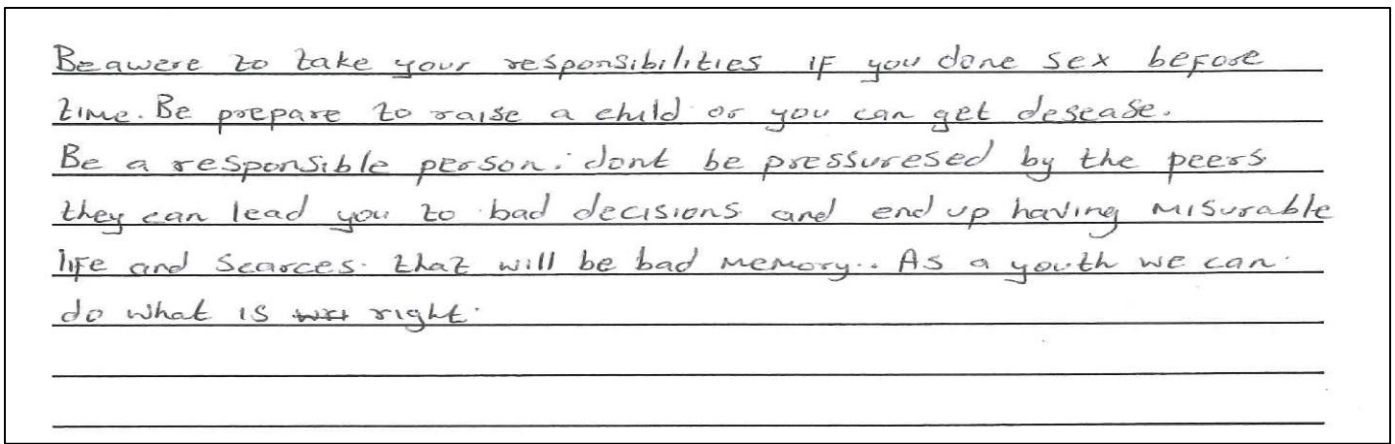 Beawere to take your responsibilities if you done sex before
time. Be prepare to raise a child or you can get desease.
Be a responsible person. dont be pressuresed by the peers
they can lead you to bad decisions and end up having misurable
life and Scarces. that will be bad memory.. As a youth we can
do what is right.